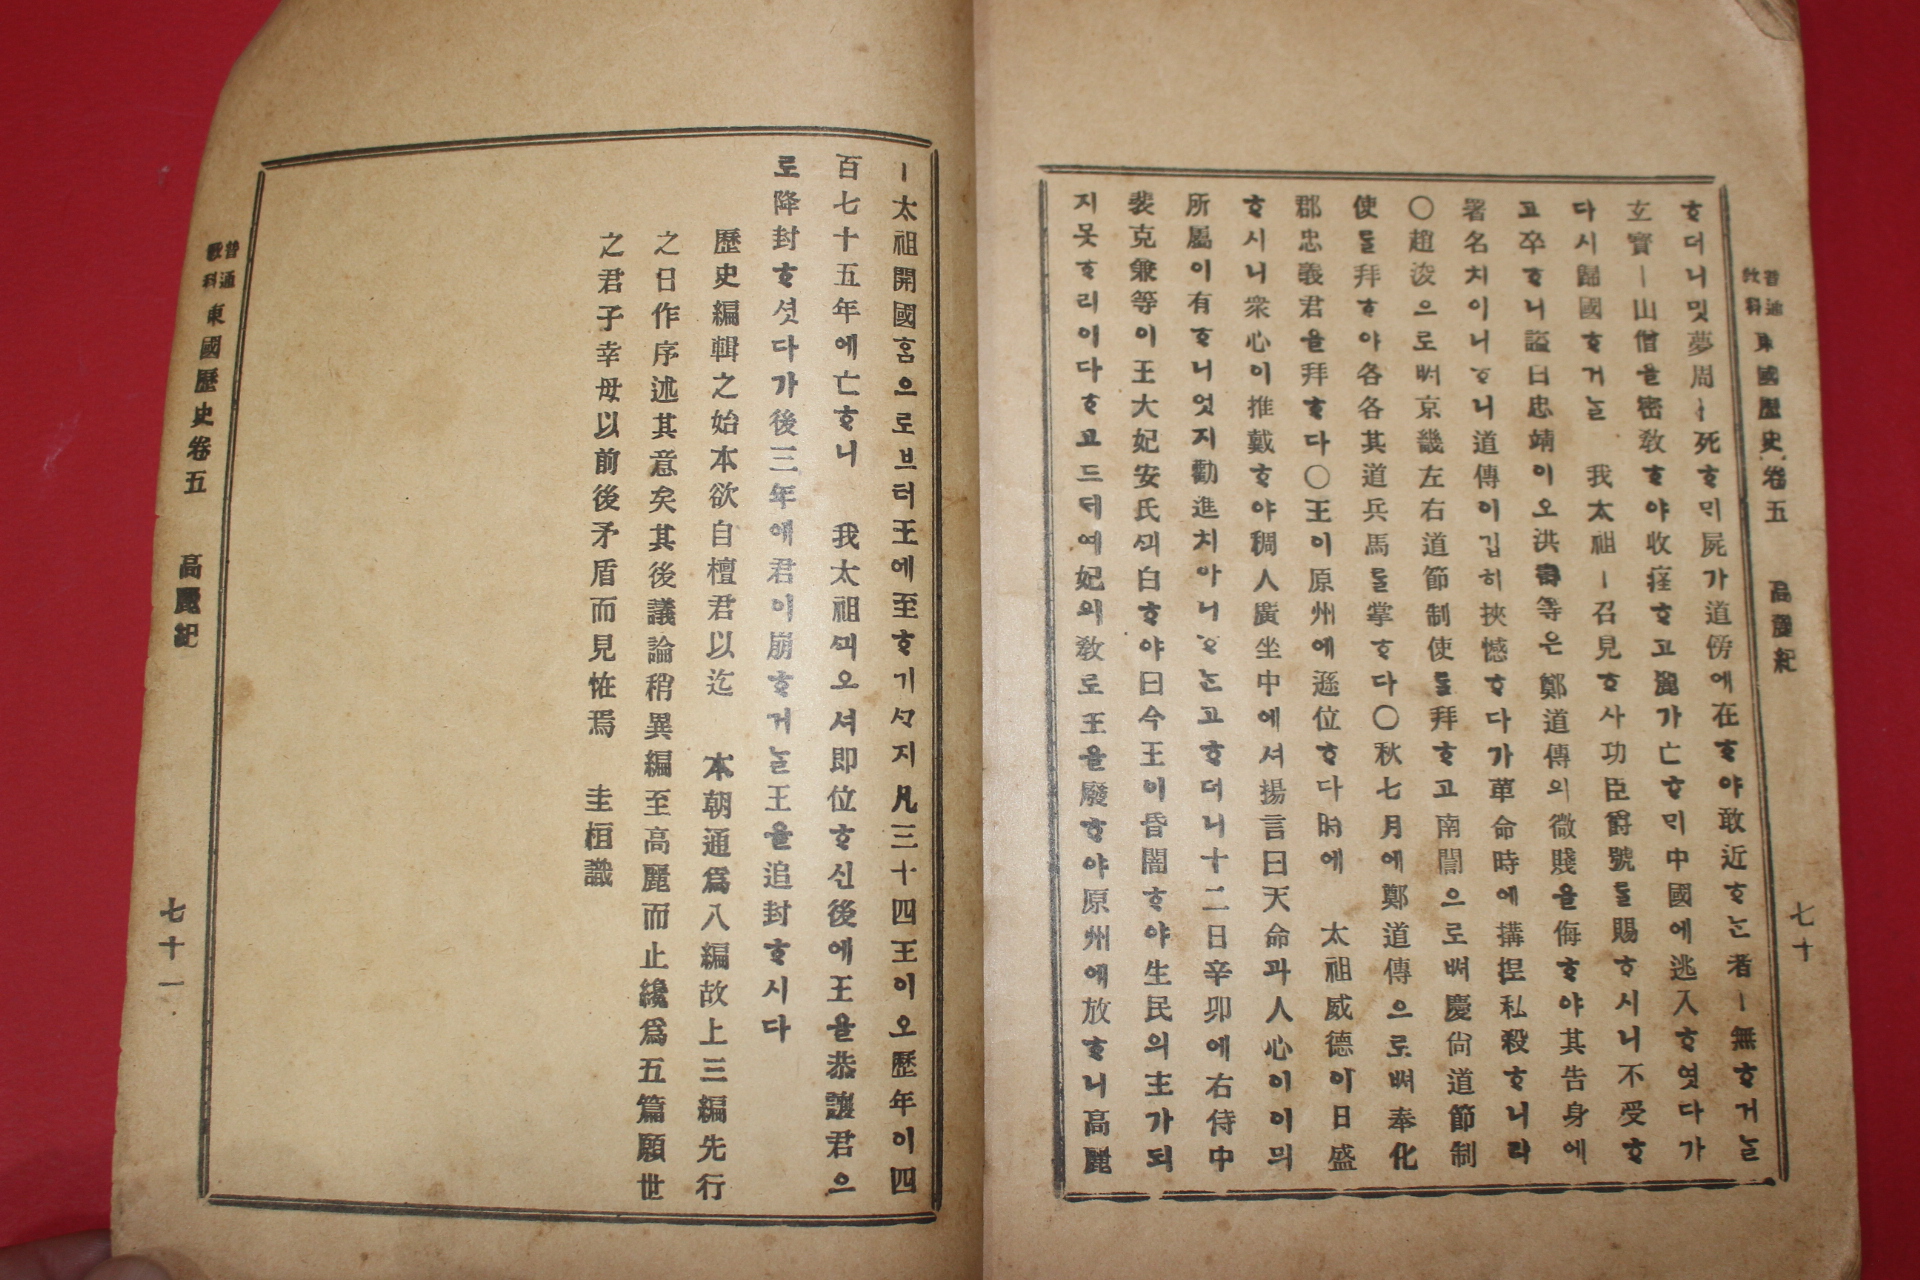 普通
敎科
東國歷史卷五 高麗紀 七十
ᄒᆞ더니밋夢周ㅣ死ᄒᆞᄆᆡ屍가道傍에在ᄒᆞ야敢近ᄒᆞᄂᆞᆫ者ㅣ無ᄒᆞ거ᄂᆞᆯ
玄寶ㅣ山僧을密敎ᄒᆞ야收瘞ᄒᆞ고麗가亡ᄒᆞᄆᆡ中國에逃入ᄒᆞ엿다가
다시歸國ᄒᆞ거ᄂᆞᆯ 我太祖ㅣ召見ᄒᆞ사功臣爵號ᄅᆞᆯ賜ᄒᆞ시니不受ᄒᆞ
고卒ᄒᆞ니諡曰忠靖이오洪壽等은鄭道傳의微賤을侮ᄒᆞ야其告身에
署名치아니ᄒᆞ니道傳이깁히挾憾ᄒᆞ다가革命時에搆捏私殺ᄒᆞ니라
〇趙浚으로ᄡᅥ京畿左右道節制使ᄅᆞᆯ拜ᄒᆞ고南誾으로ᄡᅥ慶尙道節制
使ᄅᆞᆯ拜ᄒᆞ야各各其道兵馬ᄅᆞᆯ掌ᄒᆞ다〇秋七月에鄭道傳으로ᄡᅥ奉化
郡忠義君을拜ᄒᆞ다〇王이原州에遜位ᄒᆞ다時에 太祖威德이日盛
ᄒᆞ시니衆心이推戴ᄒᆞ야稠人廣坐中에셔揚言曰天命과人心이이믜
所屬이有ᄒᆞ니엇지勸進치아니ᄒᆞᄂᆞᆫ고ᄒᆞ더니十二日辛卯에右侍中
裴克兼等이王大妃安氏ᄭᅴ白ᄒᆞ야曰今王이昏闇ᄒᆞ야生民의主가되
지못ᄒᆞ리이다ᄒᆞ고드ᄃᆡ여妃의敎로王을廢ᄒᆞ야原州에放ᄒᆞ니高麗
ㅣ太祖開國홈으로브터王에至ᄒᆞ기ᄭᆞ지凡三十四王이오歷年이四
百七十五年에亡ᄒᆞ니 我太祖ᄭᅴ오셔卽位ᄒᆞ신後에王을恭讓君으
로降封ᄒᆞ셧다가後三年에君이崩ᄒᆞ거ᄂᆞᆯ王을追封ᄒᆞ시다
歷史編輯之始本欲自檀君以迄 本朝通爲八編故上三編先行
之日作序述其意矣其後議論稍異編至高麗而止纔爲五篇願世
之君子幸毋以前後矛盾而見恠焉 圭桓識
普通
敎科
東國歷史卷五 高麗紀 七十一